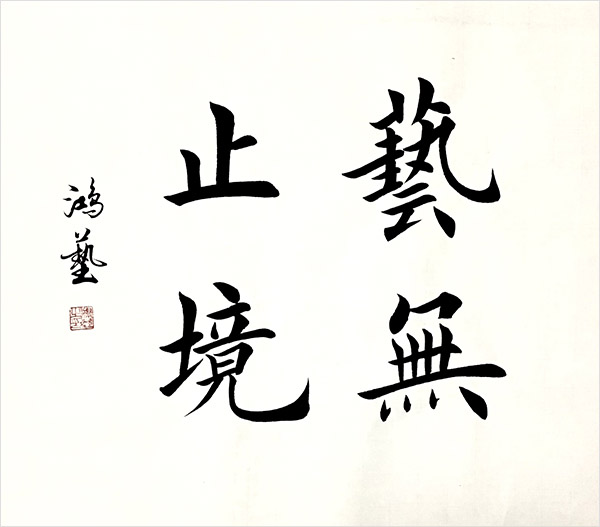 藝無
止境
鴻藝